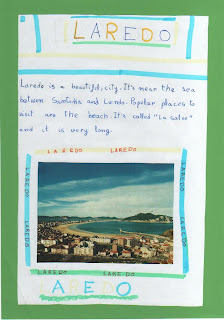 LAREDO
Laredo is a beautiful city. It's near the sea
between Santoña and Liendo. Popular places to
visit are the beach. It's called "La Salve"
and it is very long.
LAREDO LAREDO
LAREDO LAREDO
LAREDO LAREDO
LAREDO LAREDO
A E O